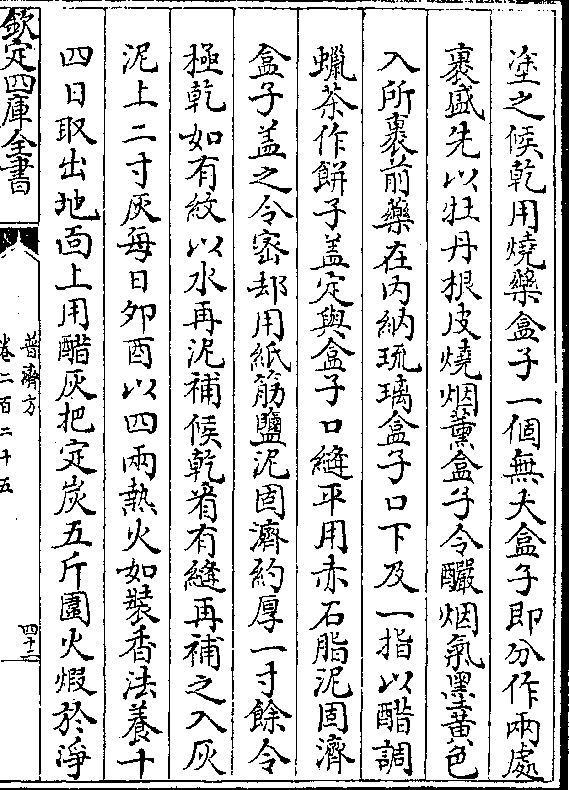 塗之候乾用燒藥盒子一個無大盒子即分作兩處
裹盛先以牡丹根皮燒烟薰盒子令釅烟氣黑黃色
入所裹前藥在内納琉璃盒子口下及一指以醋調
蠟茶作餅子蓋定與盒子口縫平用赤石脂泥固濟
盒子盖之令宻却用紙筋鹽泥固濟約厚一寸餘令
極乾如有紋以水再泥補候乾㸔有縫再補之入灰
泥上二寸灰每日夘酉以四兩熱火如裝香法養十
四日取出地靣上用醋灰把定炭五斤圍火煆於淨
欽定四庫全書
普濟方
卷二百二十五